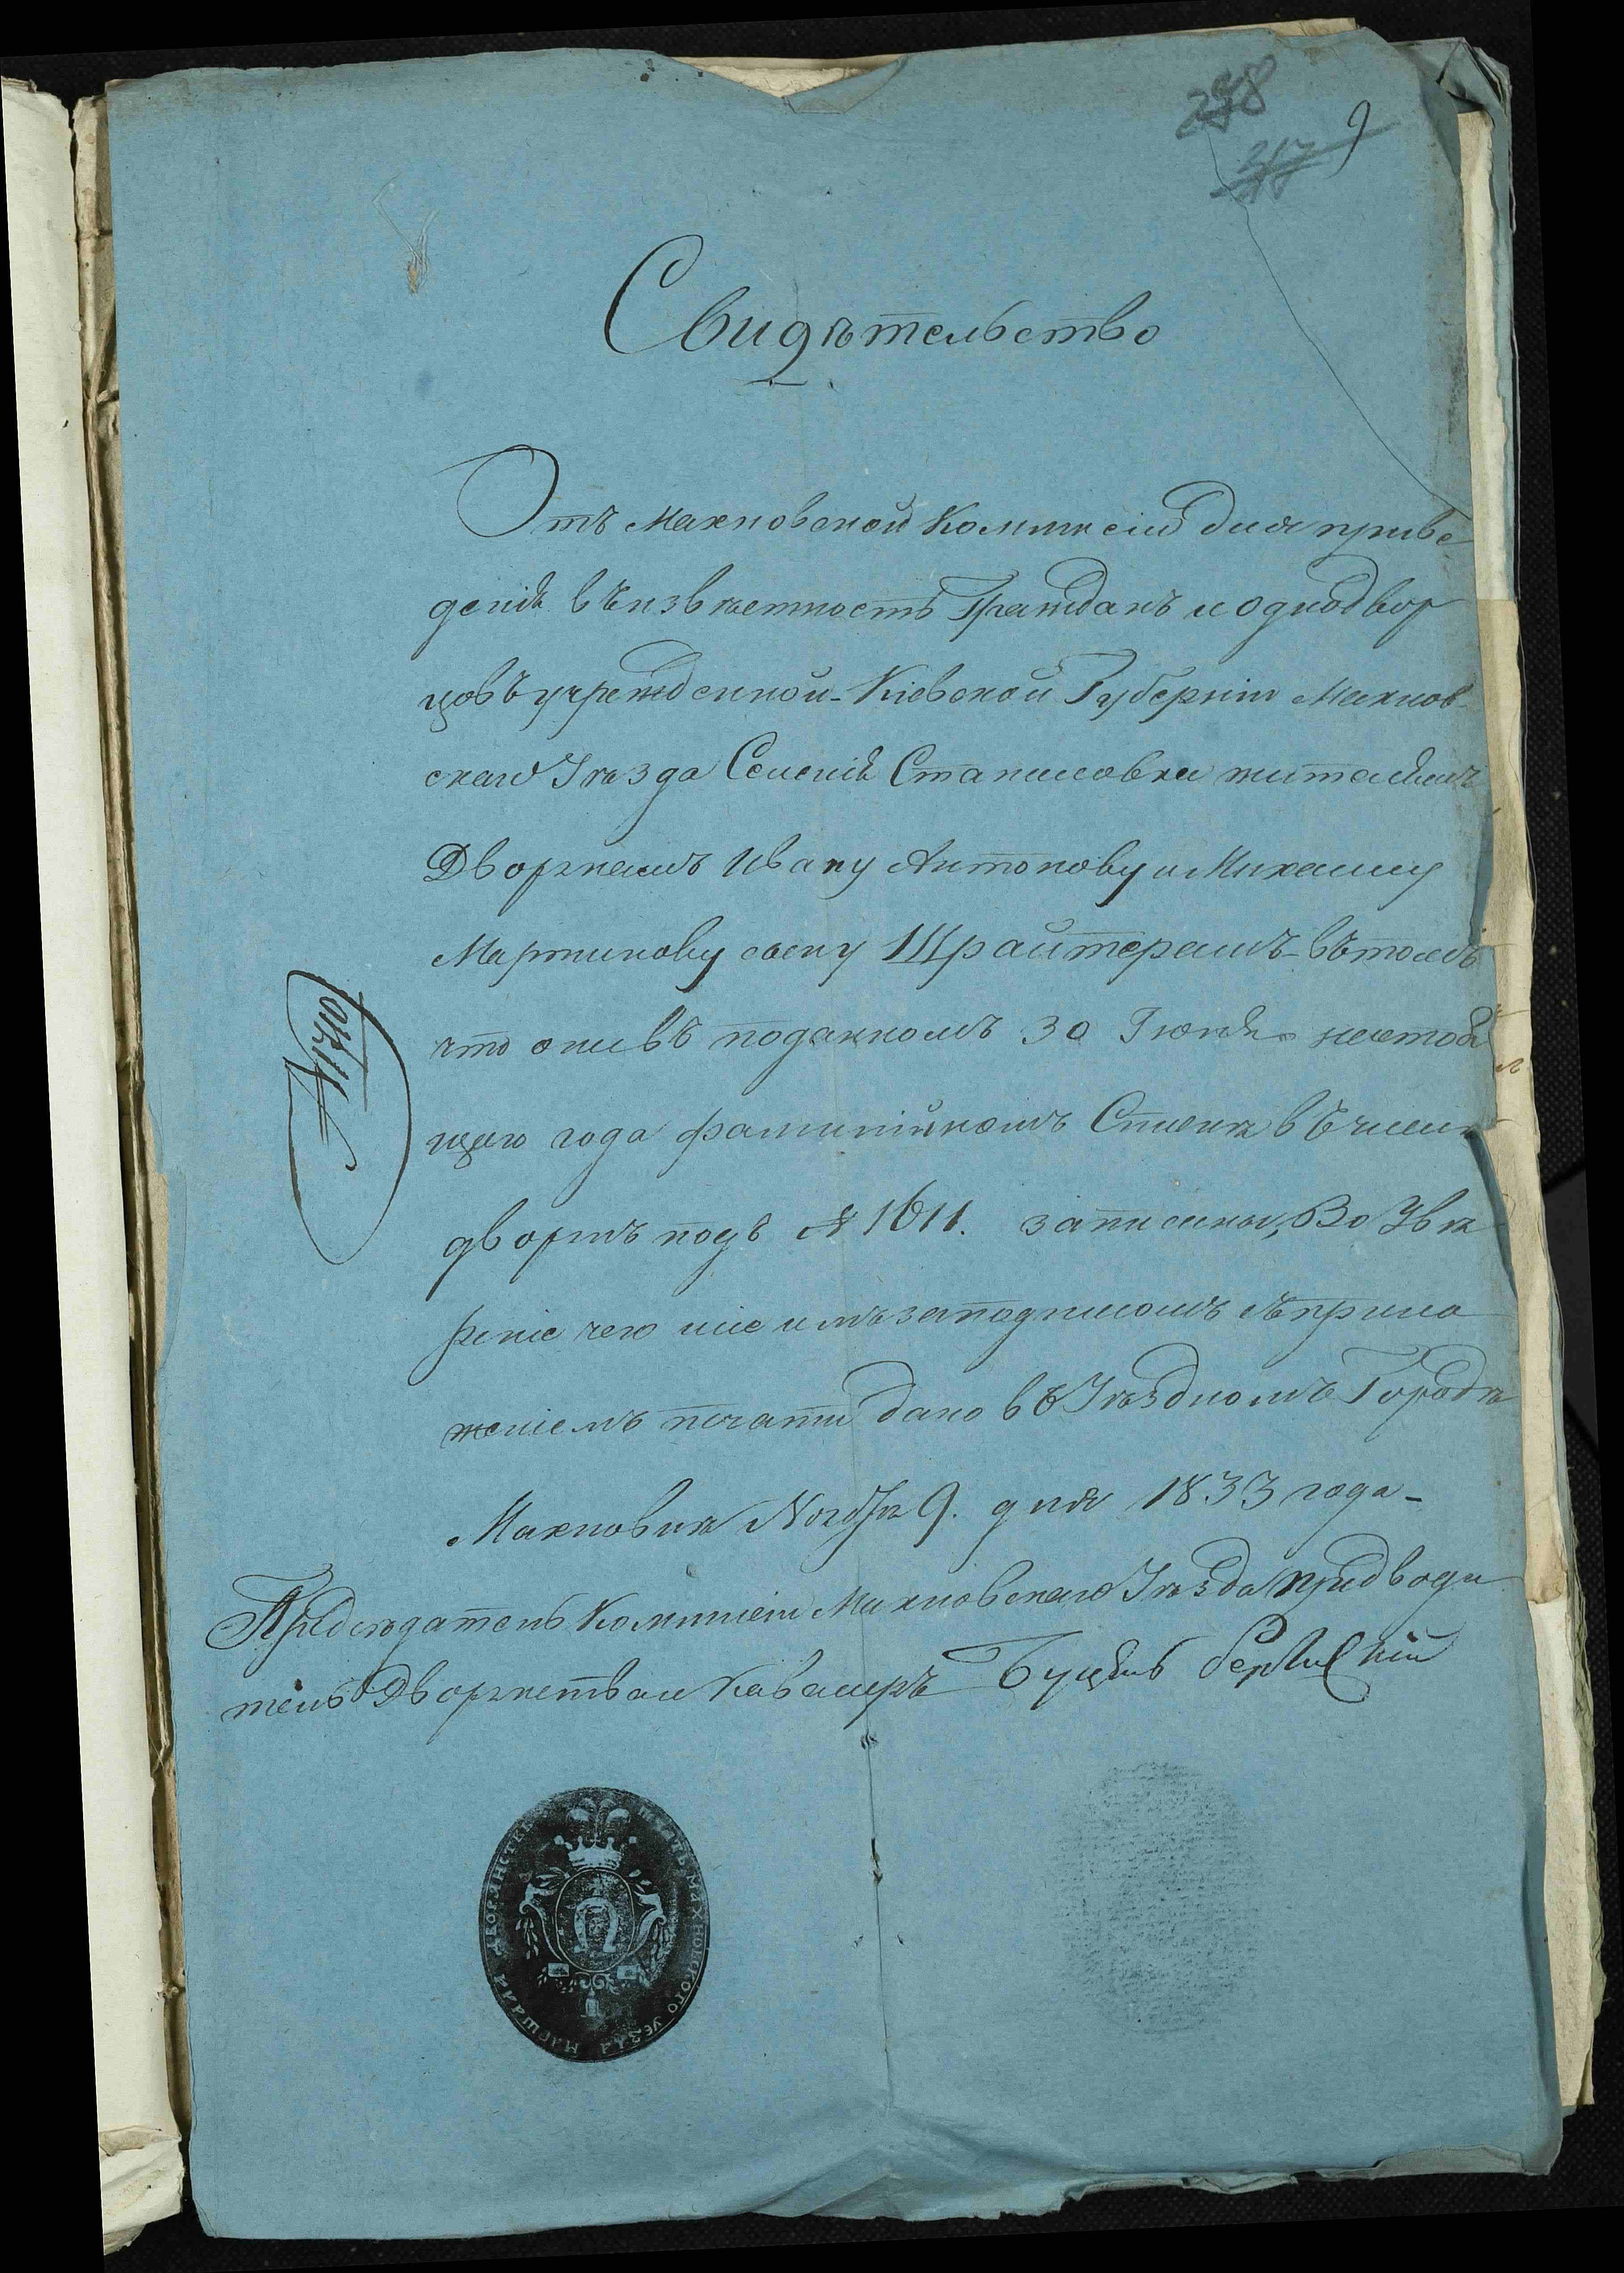 9
Свидѣтельство
Отъ Махновской Коммисіи для приве
денія въ извѣстность Гражданъ и однодвор
цовъ учрежденной - Кіевской Губерніи Махнов
скаго Уѣзда Селенія Станиловки жителямъ
Дворянамъ Ивану Антонову и Михаилу
Мартинову сыну Шрайтерамъ - въ томъ
что они въ поданномъ 30 Іюня настоя
щаго года фамилійномъ Спискѣ въ числѣ
дворянъ подъ № 1611. записаны, Во Увѣ
реніе чего сіе имъ за подписомъ и прило
женіемъ печати дано въ Уѣздномъ Городѣ
Махновкѣ Ноября 9. дня 1833 года -
Предсѣдатель Коммисіи Махновскаго Уѣзда предводи
тель Дворянства и Кавалеръ
МАХНОВСКОГО УЕЗДА МАРШАЛА ДВОРЯНСТВА